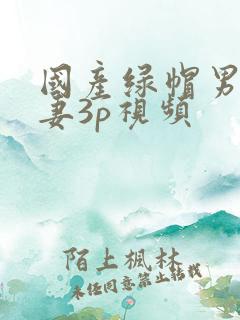 國產綠帽男
妻3p視頻
陌上楓林
未任同意禁止轉載